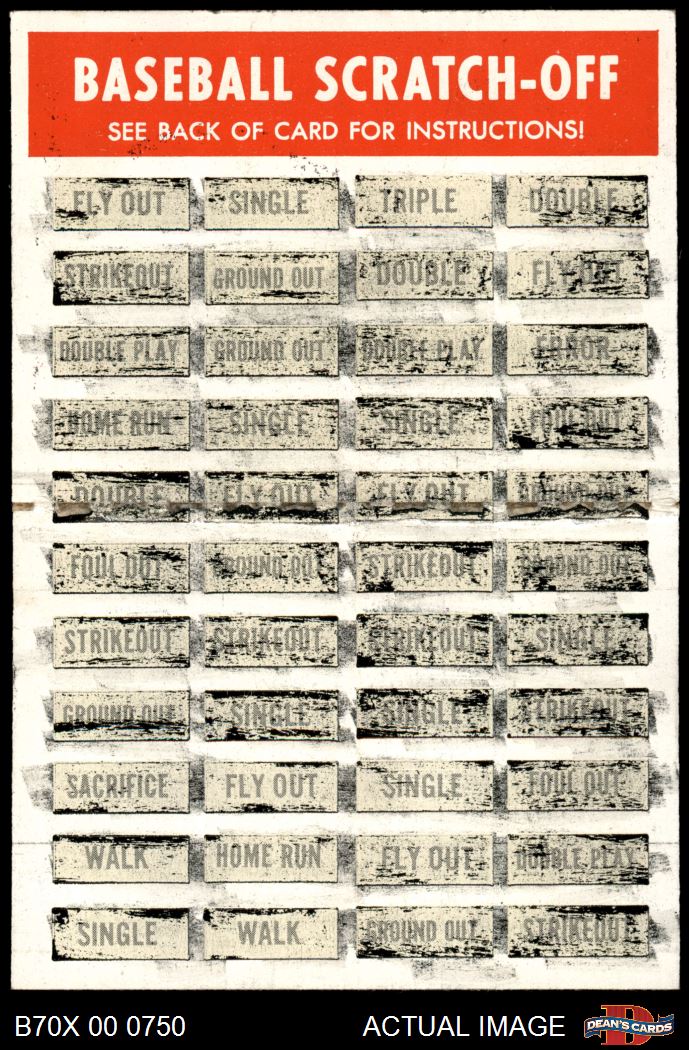 BASEBALL SCRATCH-OFF
SEE BACK OF CARD FOR INSTRUCTIONS!
FLY OUT SINGLE TRIPLE DOUBLE
STRIKEOUT GROUND OUT DOUBLE FLY OUT
DOUBLE PLAY GROUND OUT DOUBLE PLAY ERROR
HOME RUN SINGLE SINGLE FOUL OUT
DOUBLE FLY OUT FLY OUT GROUND OUT
FOUL OUT GROUND OUT STRIKEOUT GROUND OUT
STRIKEOUT STRIKEOUT STRIKEOUT SINGLE
GROUND OUT SINGLE SINGLE STRIKEOUT
SACRIFICE FLY OUT SINGLE FOUL OUT
WALK HOME RUN FLY OUT DOUBLE PLAY
SINGLE WALK GROUND OUT STRIKEOUT
B70X 00 0750 ACTUAL IMAGE DEAN'S CARDS